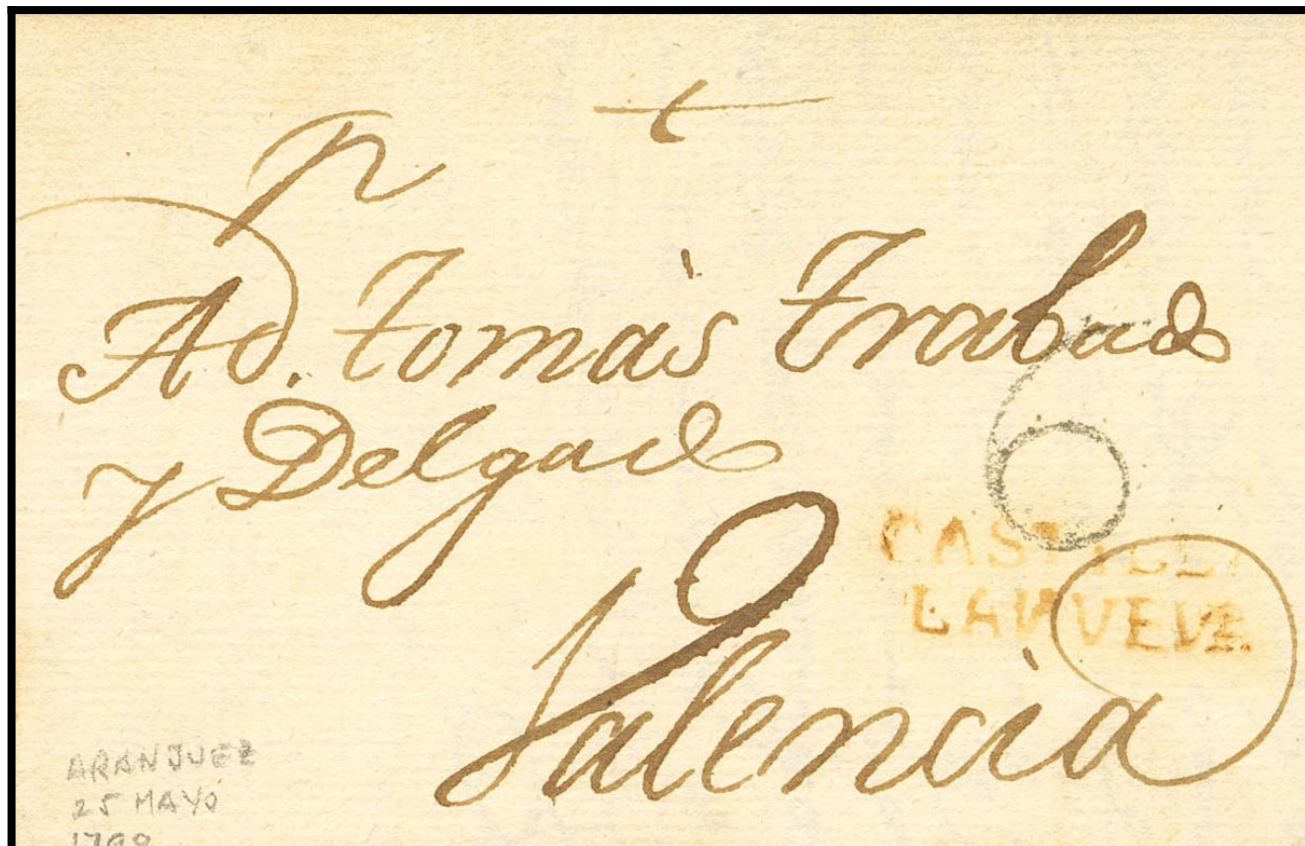 +
A d. Tomàs Trabado
y Delgado
6
CASTILLA
LANUEVA
Valencia
ARANJUEZ
25 MAYO